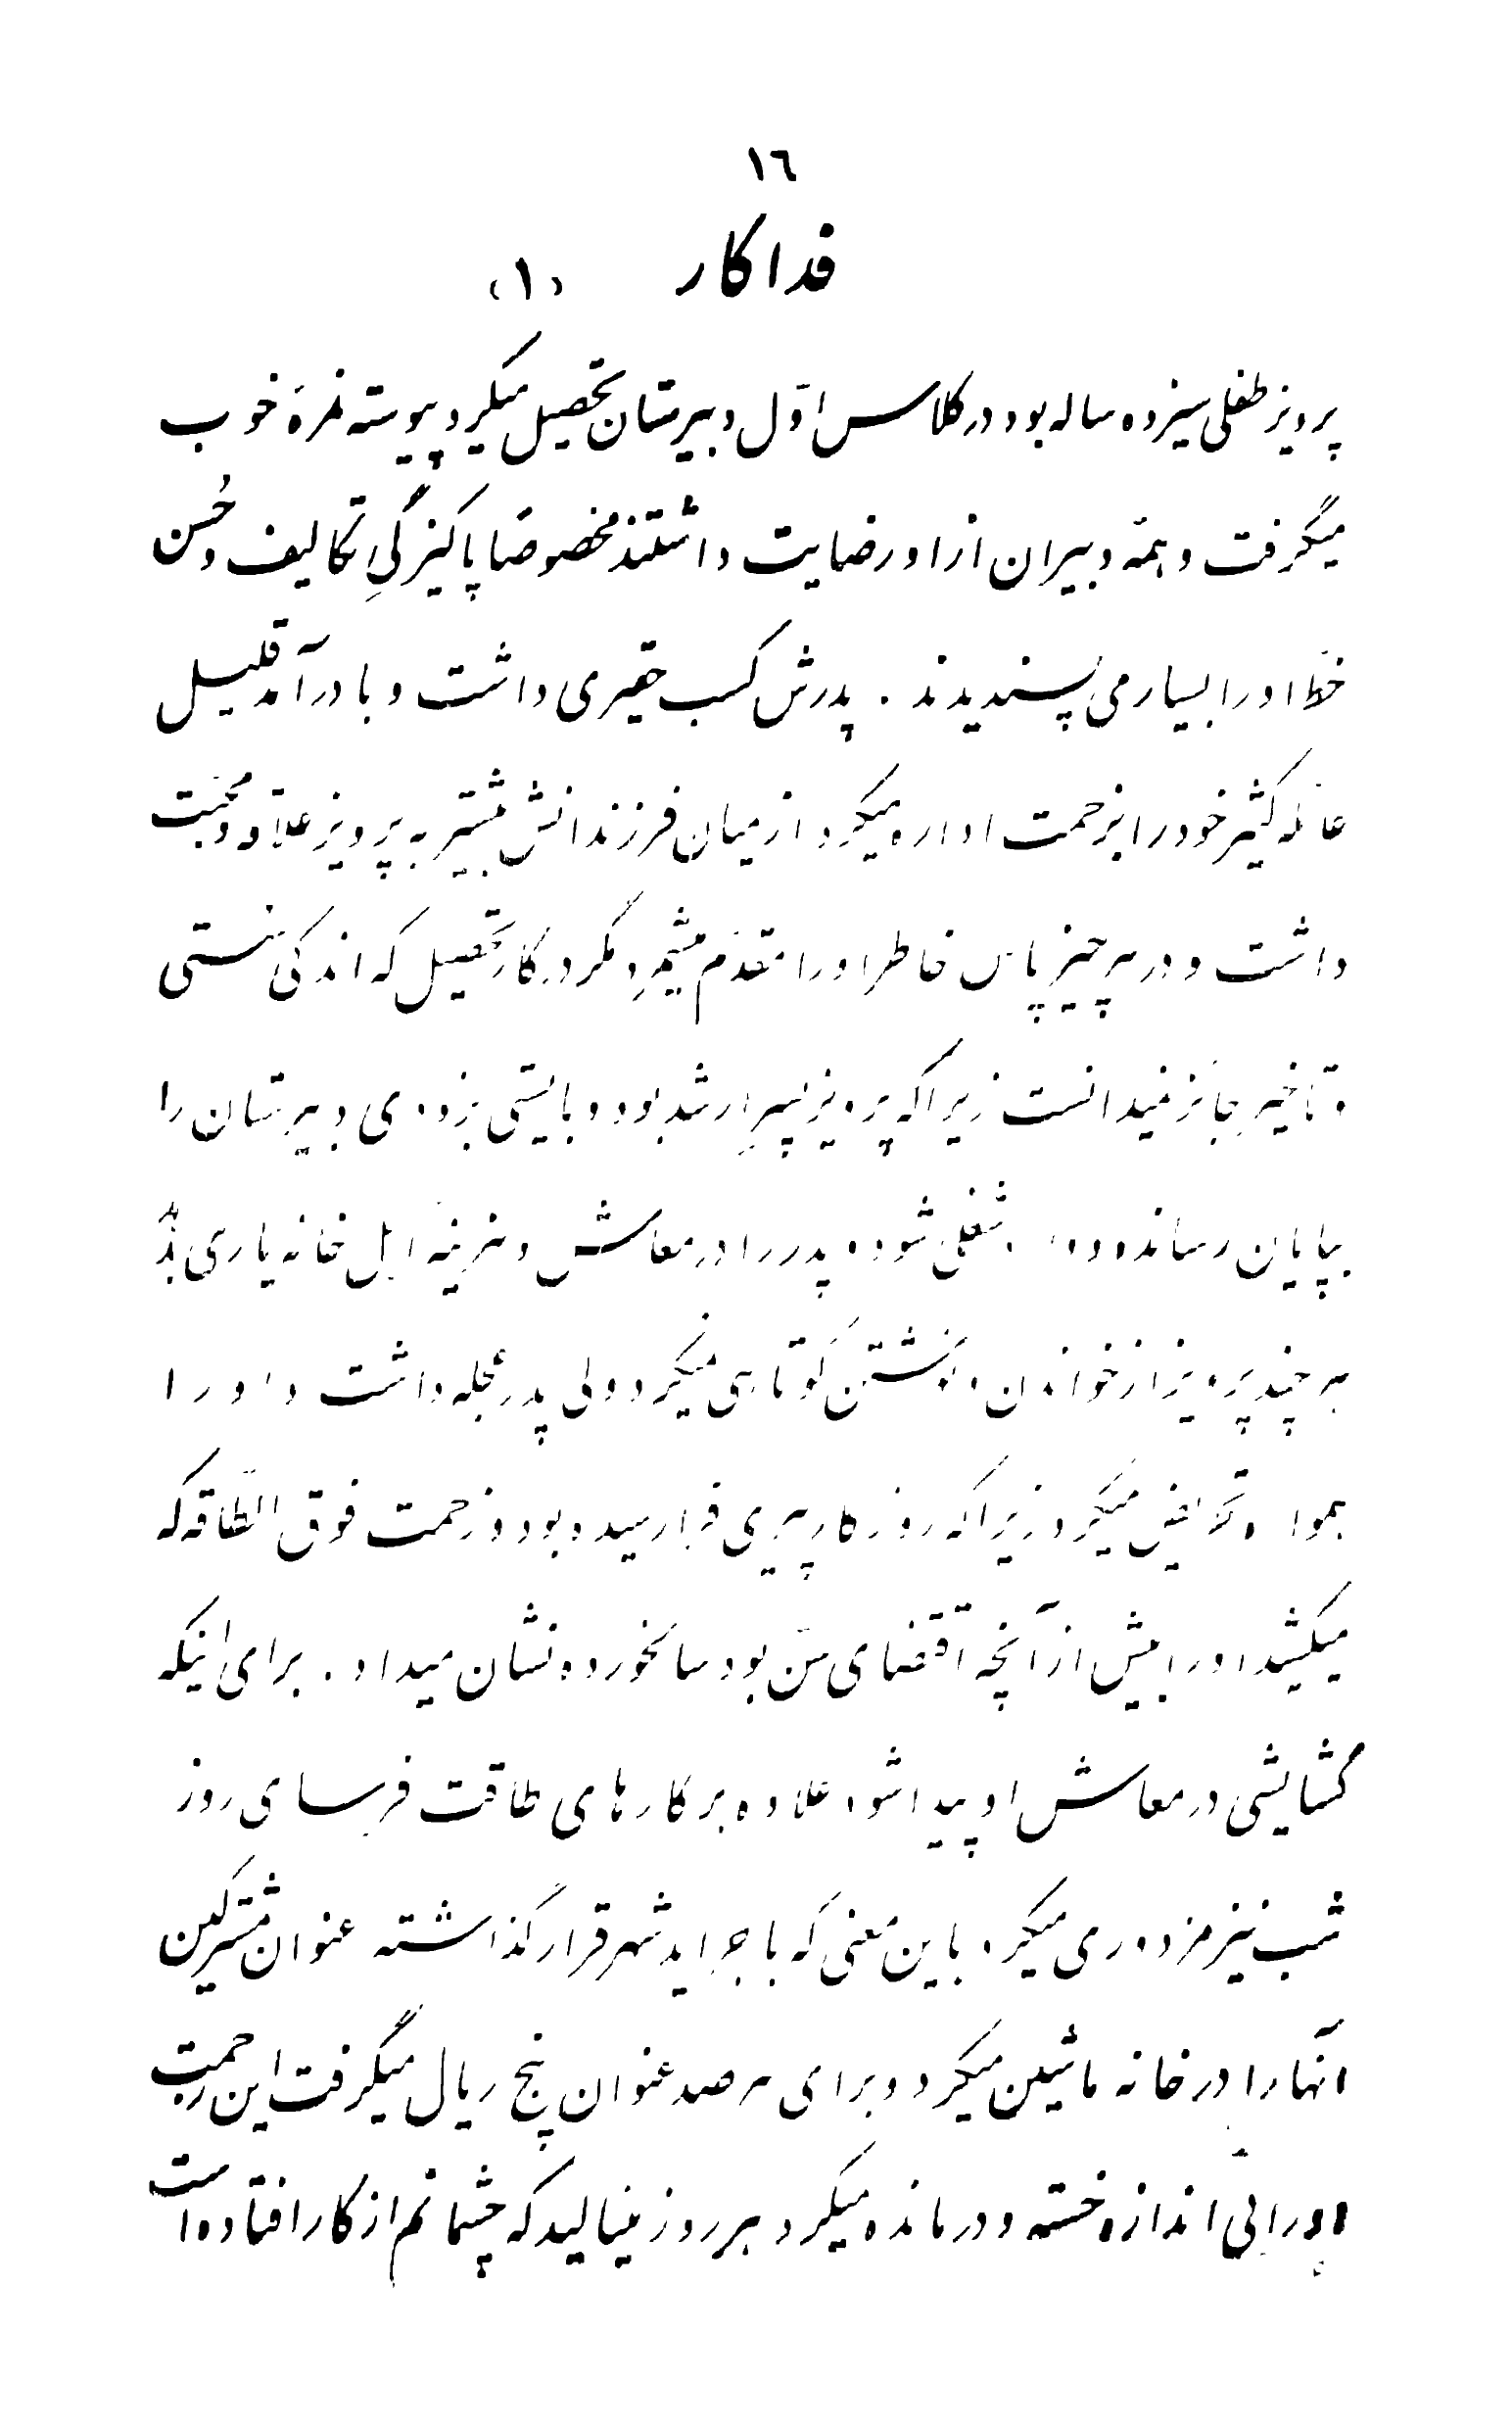 ١٦
فداکار (١)
پرویز طفلی سیزده ساله بود در کلاس اوّل دبیرستان تحصیل میکرد پیوسته نمرهٔ خوب
میگرفت و همهٔ دبیران از او رضایت داشتند مخصوصًا پاکیزگیِ تکالیف و حُسن
خطّ او را بسیار می پسندیدند . پدرش کسب حقیری داشت و با درآمد قلیل
عائلهٔ کثیر خود را بزحمت اداره میکرد از میان فرزندانش بیشتر به پرویز علاقه و محبّت
داشت و در هر چیز پاس خاطر او را مقدّم میشمرد مگر در کار تحصیل که اندکی سستی
و تأخیر جایز نمیدانست زیرا که پرویز پسرِ ارشد بود و بایستی بزودی دبیرستان را
بپایان رسانده وارد شغلی شود و پدر را در معاش و هزینهٔ اهل خانه یاری بدهد
هر چند پرویز از خواندن و نوشتن کوتاهی نمیکرد ولی پدر عجله داشت و او را
همواره تحریض میکرد زیرا که روزگار پیری فرا رسیده بود و زحمت فوق الطّاقه که
میکشید او را بیش از آنچه اقتضای سنّ بود سالخورده نشان میداد . برای اینکه
گشایشی در معاش او پیدا شود علاوه بر کارهای طاقت فرسای روز
شب نیز مزدوری میکرد باین معنی که با جراید شهر قرار گذاشته عنوان مشترکین
آنها را در خانه ماشین میکرد و برای هر صد عنوان پنج ریال میگرفت این زحمت
او را بی اندازه خسته و درمانده میکرد هر روز مینالید که چشمانم از کار افتاده است